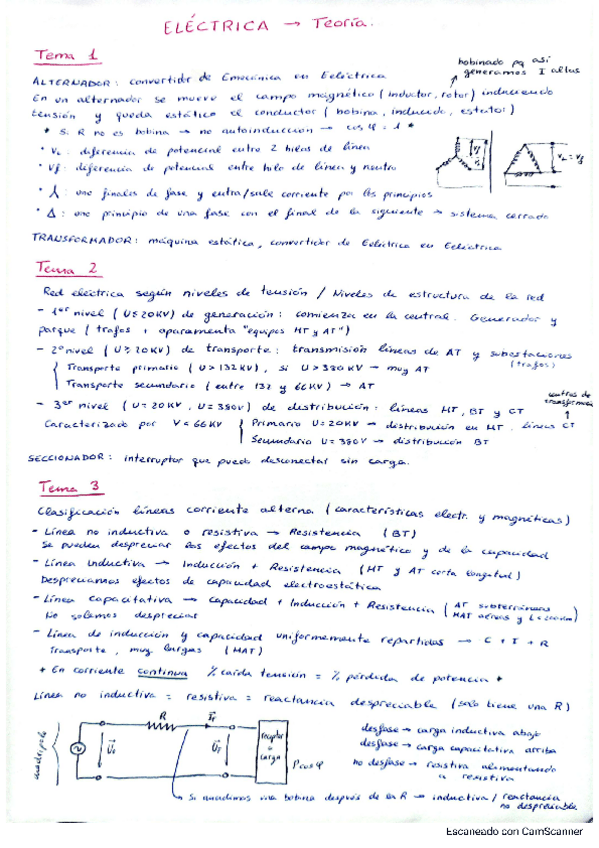 ELÉCTRICA → Teoría.
Tema 1
bobinado pq así
generamos I altas
ALTERNADOR: convertidor de Emecánica en Eeléctrica
En un alternador se mueve el campo magnético (inductor, rotor) induciendo
tensión y queda estático el conductor (bobina, inducido, estator)
* Si R no es bobina → no autoinducción → cos φ = 1 *
· VL: diferencia de potencial entre 2 hilos de línea
· Vf: diferencia de potencial entre hilo de línea y neutro
VL = Vf
· ⅄: une finales de fase y entra/sale corriente por los principios
· Δ: une principio de una fase con el final de la siguiente → sistema cerrado
TRANSFORMADOR: máquina estática, convertidor de Eeléctrica en Eeléctrica
Tema 2
Red eléctrica según niveles de tensión / Niveles de estructura de la red
- 1er nivel (U≤20KV) de generación: comienza en la central. Generador y
parque (trafos + aparamenta "equipos MT y AT")
- 2º nivel (U≥20KV) de transporte: transmisión líneas de AT y subestaciones
(trafos)
Transporte primario (U>132KV), si U>380KV → muy AT
Transporte secundario (entre 132 y 66KV) → AT
centros de
transformación
- 3er nivel (U=20KV, U=380V) de distribución: líneas MT, BT y CT
Caracterizado por V=66KV
Primario U=20KV → distribución en MT, líneas CT
Secundario U=380V → distribución BT
SECCIONADOR: interruptor que puede desconectar sin carga.
Tema 3
Clasificación líneas corriente alterna (características electr. y magnéticas)
- Línea no inductiva o resistiva → Resistencia (BT)
Se pueden despreciar los efectos del campo magnético y de la capacidad
- Línea inductiva → Inducción + Resistencia (MT y AT corta longitud)
Despreciamos efectos de capacidad electroestática
- Línea capacitativa → Capacidad + Inducción + Resistencia (AT subterráneas
MAT aéreas y L<200km)
No solemos despreciar
- Línea de inducción y capacidad uniformemente repartidas → C + I + R
Transporte, muy largas (MAT)
* En corriente continua % caída tensión = % pérdida de potencia *
Línea no inductiva = resistiva = reactancia despreciable (solo tiene una R)
R
receptor
o
carga
P cos φ
desfase → carga inductiva abajo
desfase → carga capacitativa arriba
no desfase → resistiva alimentando
a resistiva
Si añadimos una bobina después de la R → inductiva / reactancia
no despreciable
Escaneado con CamScanner